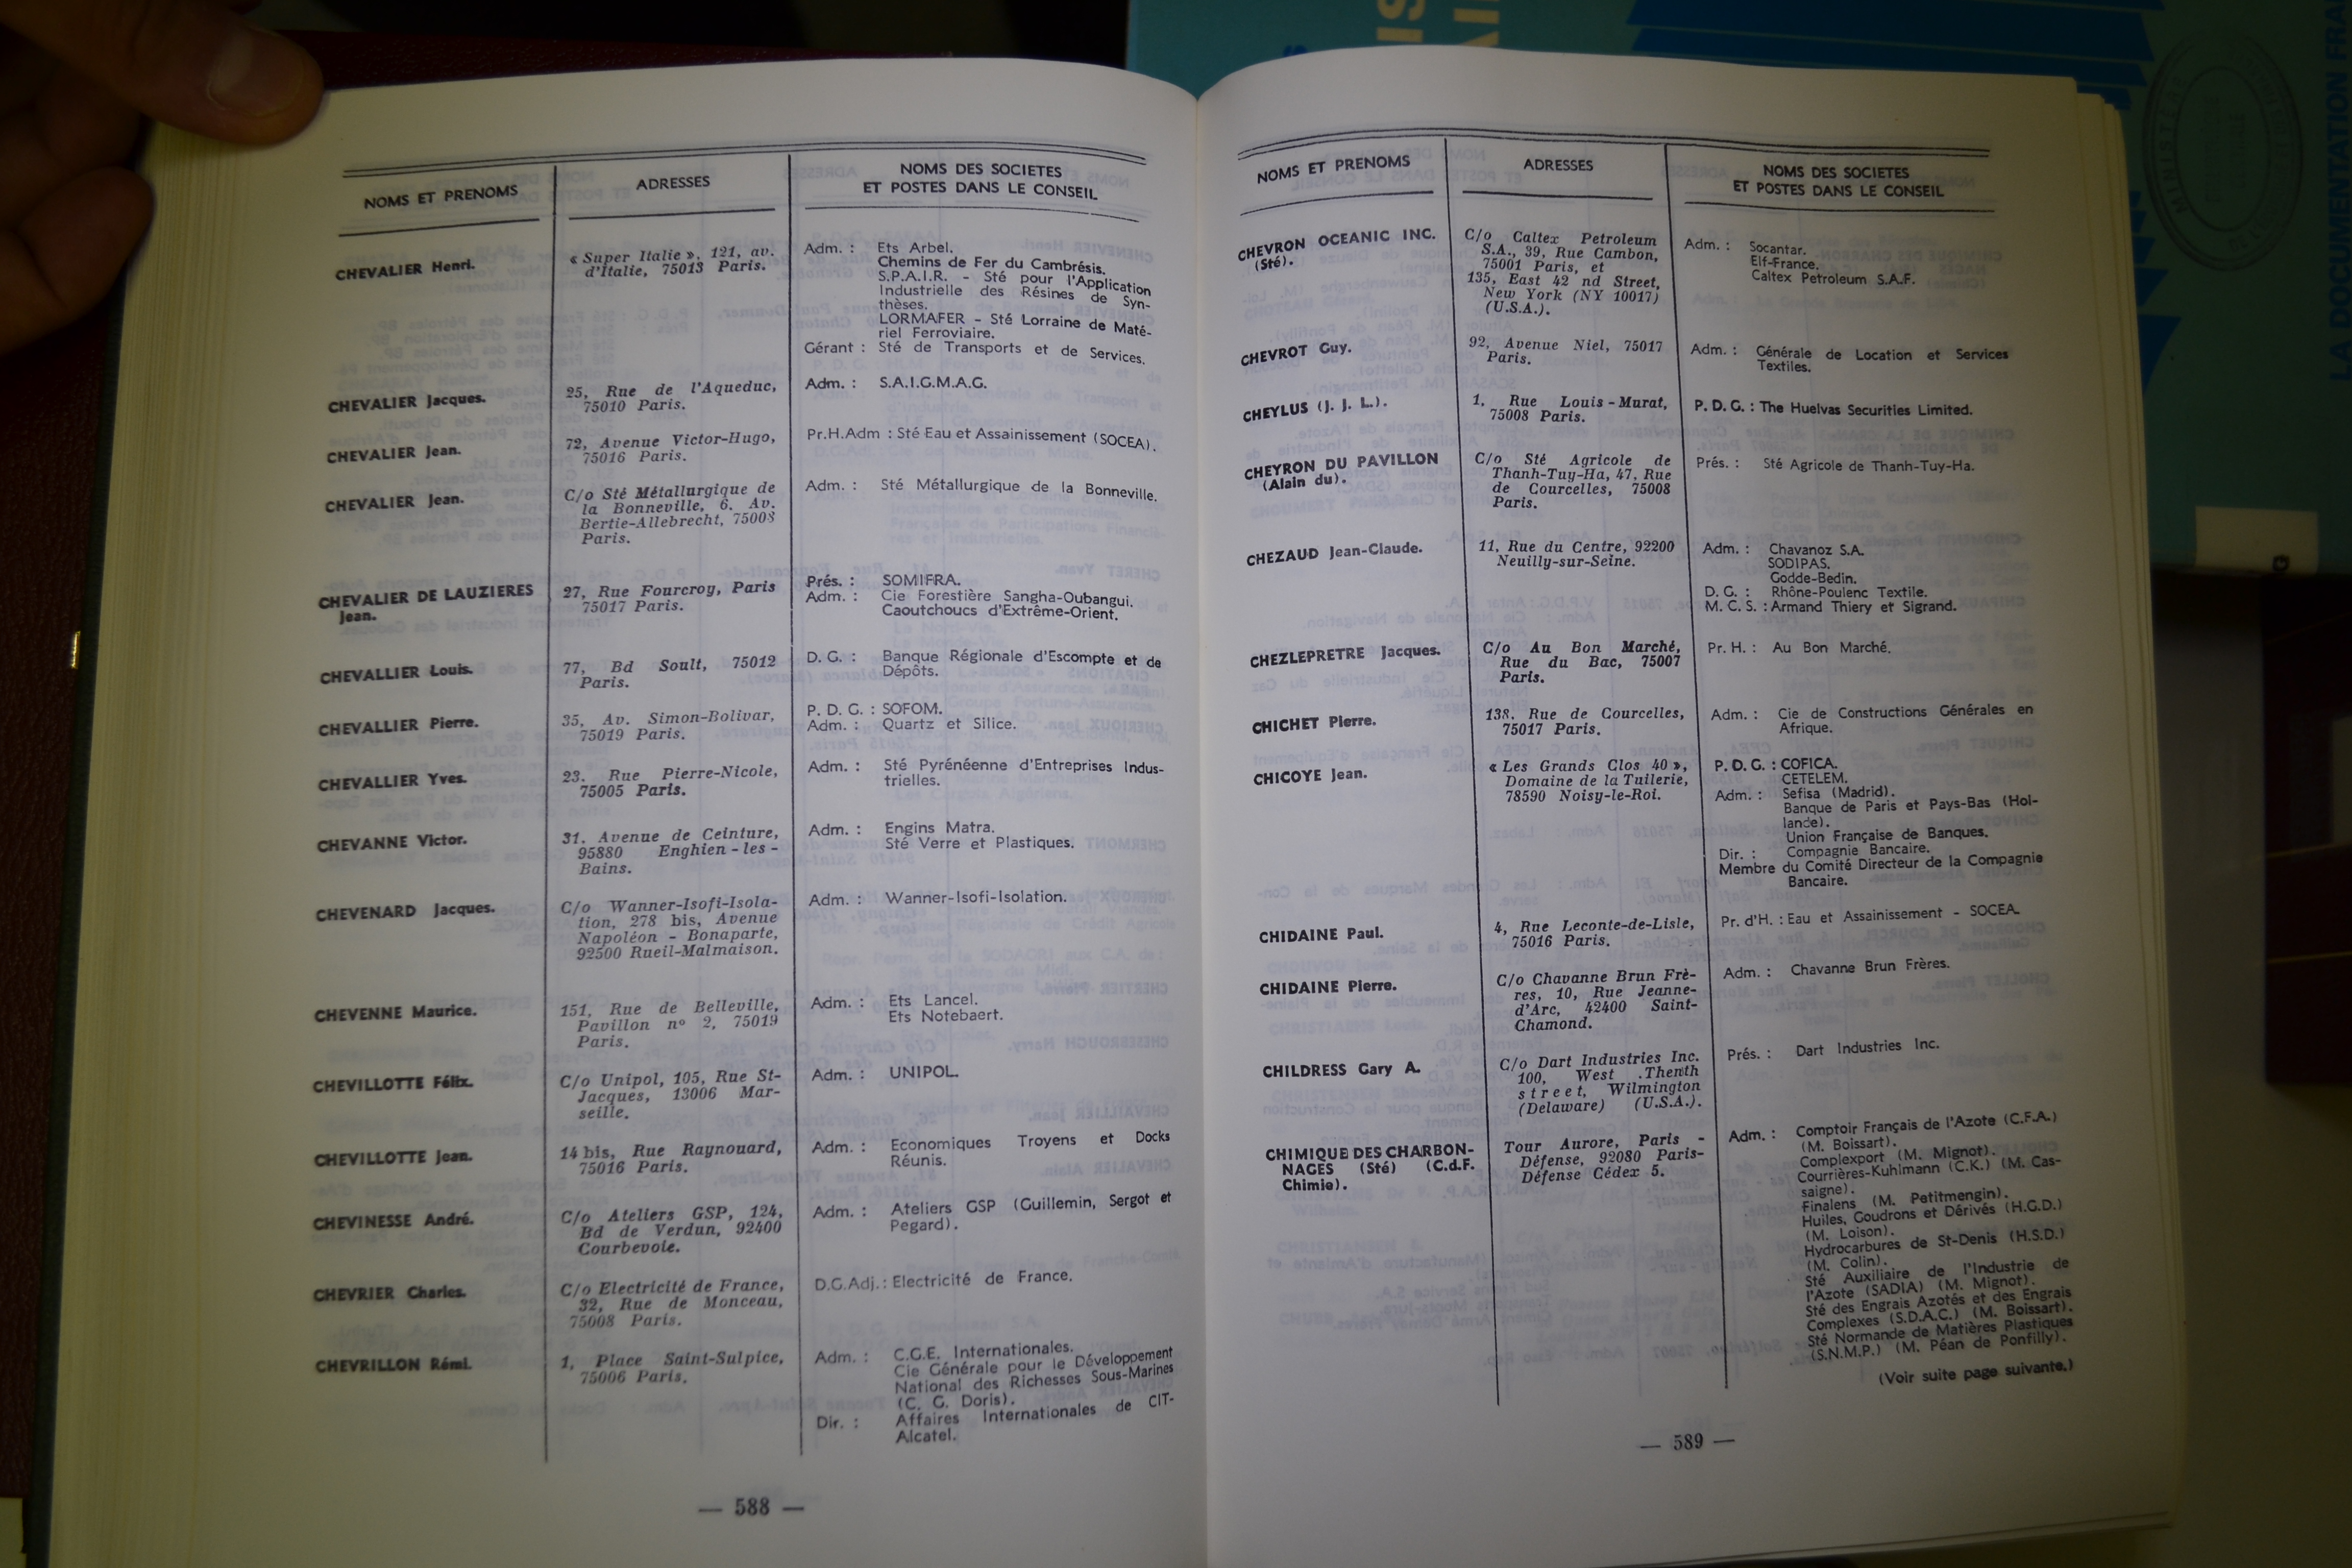 NOMS ET PRENOMS
ADRESSES
NOMS DES SOCIETES
ET POSTES DANS LE CONSEIL
CHEVALIER Henri.
« Super Italie », 121, av.
d'Italie, 75013 Paris.
Adm. : Ets Arbel.
Chemins de Fer du Cambrésis.
S.P.A.I.R. - Sté pour l'Application
Industrielle des Résines de Syn-
thèses.
LORMAFER - Sté Lorraine de Maté-
riel Ferroviaire.
Gérant : Sté de Transports et de Services.
CHEVALIER Jacques.
25, Rue de l'Aqueduc,
75010 Paris.
Adm. : S.A.I.G.M.A.G.
CHEVALIER Jean.
72, Avenue Victor-Hugo,
75016 Paris.
Pr.H.Adm : Sté Eau et Assainissement (SOCEA).
CHEVALIER Jean.
C/o Sté Métallurgique de
la Bonneville, 6, Av.
Bertie-Allebrecht, 75008
Paris.
Adm. : Sté Métallurgique de la Bonneville.
CHEVALIER DE LAUZIERES
Jean.
27, Rue Fourcroy, Paris
75017 Paris.
Prés. : SOMIFRA.
Adm. : Cie Forestière Sangha-Oubangui.
Caoutchoucs d'Extrême-Orient.
CHEVALLIER Louis.
77, Bd Soult, 75012
Paris.
D. G. : Banque Régionale d'Escompte et de
Dépôts.
CHEVALLIER Pierre.
35, Av. Simon-Bolivar,
75019 Paris.
P. D. G. : SOFOM.
Adm. : Quartz et Silice.
CHEVALLIER Yves.
23. Rue Pierre-Nicole,
75005 Paris.
Adm. : Sté Pyrénéenne d'Entreprises Indus-
trielles.
CHEVANNE Victor.
31, Avenue de Ceinture,
95880 Enghien - les -
Bains.
Adm. : Engins Matra.
Sté Verre et Plastiques.
CHEVENARD Jacques.
C/o Wanner-Isofi-Isola-
tion, 278 bis, Avenue
Napoléon - Bonaparte,
92500 Rueil-Malmaison.
Adm. : Wanner-Isofi-Isolation.
CHEVENNE Maurice.
151, Rue de Belleville,
Pavillon nº 2, 75019
Paris.
Adm. : Ets Lancel.
Ets Notebaert.
CHEVILLOTTE Félix.
C/o Unipol, 105, Rue St-
Jacques, 13006 Mar-
seille.
Adm. : UNIPOL.
CHEVILLOTTE Jean.
14 bis, Rue Raynouard,
75016 Paris.
Adm. : Economiques Troyens et Docks
Réunis.
CHEVINESSE André.
C/o Ateliers GSP, 124,
Bd de Verdun, 92400
Courbevoie.
Adm. : Ateliers GSP (Guillemin, Sergot et
Pegard).
CHEVRIER Charles.
C/o Electricité de France,
32, Rue de Monceau,
75008 Paris.
D.G.Adj. : Electricité de France.
CHEVRILLON Rémi.
1, Place Saint-Sulpice,
75006 Paris.
Adm. : C.G.E. Internationales.
Cie Générale pour le Développement
National des Richesses Sous-Marines
(C. G. Doris).
Dir. : Affaires Internationales de CIT-
Alcatel.
— 588 —
NOMS ET PRENOMS
ADRESSES
NOMS DES SOCIETES
ET POSTES DANS LE CONSEIL
CHEVRON OCEANIC INC.
(Sté).
C/o Caltex Petroleum
S.A., 39, Rue Cambon,
75001 Paris, et
135, East 42 nd Street,
New York (NY 10017)
(U.S.A.).
Adm. : Socantar.
Elf-France.
Caltex Petroleum S.A.F.
CHEVROT Guy.
92, Avenue Niel, 75017
Paris.
Adm. : Générale de Location et Services
Textiles.
CHEYLUS (J. J. L.).
1, Rue Louis-Murat,
75008 Paris.
P. D. G. : The Huelvas Securities Limited.
CHEYRON DU PAVILLON
(Alain du).
C/o Sté Agricole de
Thanh-Tuy-Ha, 47, Rue
de Courcelles, 75008
Paris.
Prés. : Sté Agricole de Thanh-Tuy-Ha.
CHEZAUD Jean-Claude.
11, Rue du Centre, 92200
Neuilly-sur-Seine.
Adm. : Chavanoz S.A.
SODIPAS.
Godde-Bedin.
D. G. : Rhône-Poulenc Textile.
M. C. S. : Armand Thiery et Sigrand.
CHEZLEPRETRE Jacques.
C/o Au Bon Marché,
Rue du Bac, 75007
Paris.
Pr. H. : Au Bon Marché.
CHICHET Pierre.
138, Rue de Courcelles,
75017 Paris.
Adm. : Cie de Constructions Générales en
Afrique.
CHICOYE Jean.
« Les Grands Clos 40 »,
Domaine de la Tuilerie,
78590 Noisy-le-Roi.
P. D. G. : COFICA.
CETELEM.
Adm. : Sefisa (Madrid).
Banque de Paris et Pays-Bas (Hol-
lande).
Union Française de Banques.
Dir. : Compagnie Bancaire.
Membre du Comité Directeur de la Compagnie
Bancaire.
CHIDAINE Paul.
4, Rue Leconte-de-Lisle,
75016 Paris.
Pr. d'H. : Eau et Assainissement - SOCEA.
CHIDAINE Pierre.
C/o Chavanne Brun Frè-
res, 10, Rue Jeanne-
d'Arc, 42400 Saint-
Chamond.
Adm. : Chavanne Brun Frères.
CHILDRESS Gary A.
C/o Dart Industries Inc.
100, West .Thenth
street, Wilmington
(Delaware) (U.S.A.).
Prés. : Dart Industries Inc.
CHIMIQUE DES CHARBON-
NAGES (Sté) (C.d.F.
Chimie).
Tour Aurore, Paris -
Défense, 92080 Paris-
Défense Cédex 5.
Adm. : Comptoir Français de l'Azote (C.F.A.)
(M. Boissart).
Complexport (M. Mignot).
Courrières-Kuhlmann (C.K.) (M. Cas-
saigne).
Finalens (M. Petitmengin).
Huiles, Goudrons et Dérivés (H.G.D.)
(M. Loison).
Hydrocarbures de St-Denis (H.S.D.)
(M. Colin).
Sté Auxiliaire de l'Industrie de
l'Azote (SADIA) (M. Mignot).
Sté des Engrais Azotés et des Engrais
Complexes (S.D.A.C.) (M. Boissart).
Sté Normande de Matières Plastiques
(S.N.M.P.) (M. Péan de Ponfilly).
(Voir suite page suivante.)
— 589 —
LA DOCUMENTATION FRAI
MINISTÈRE